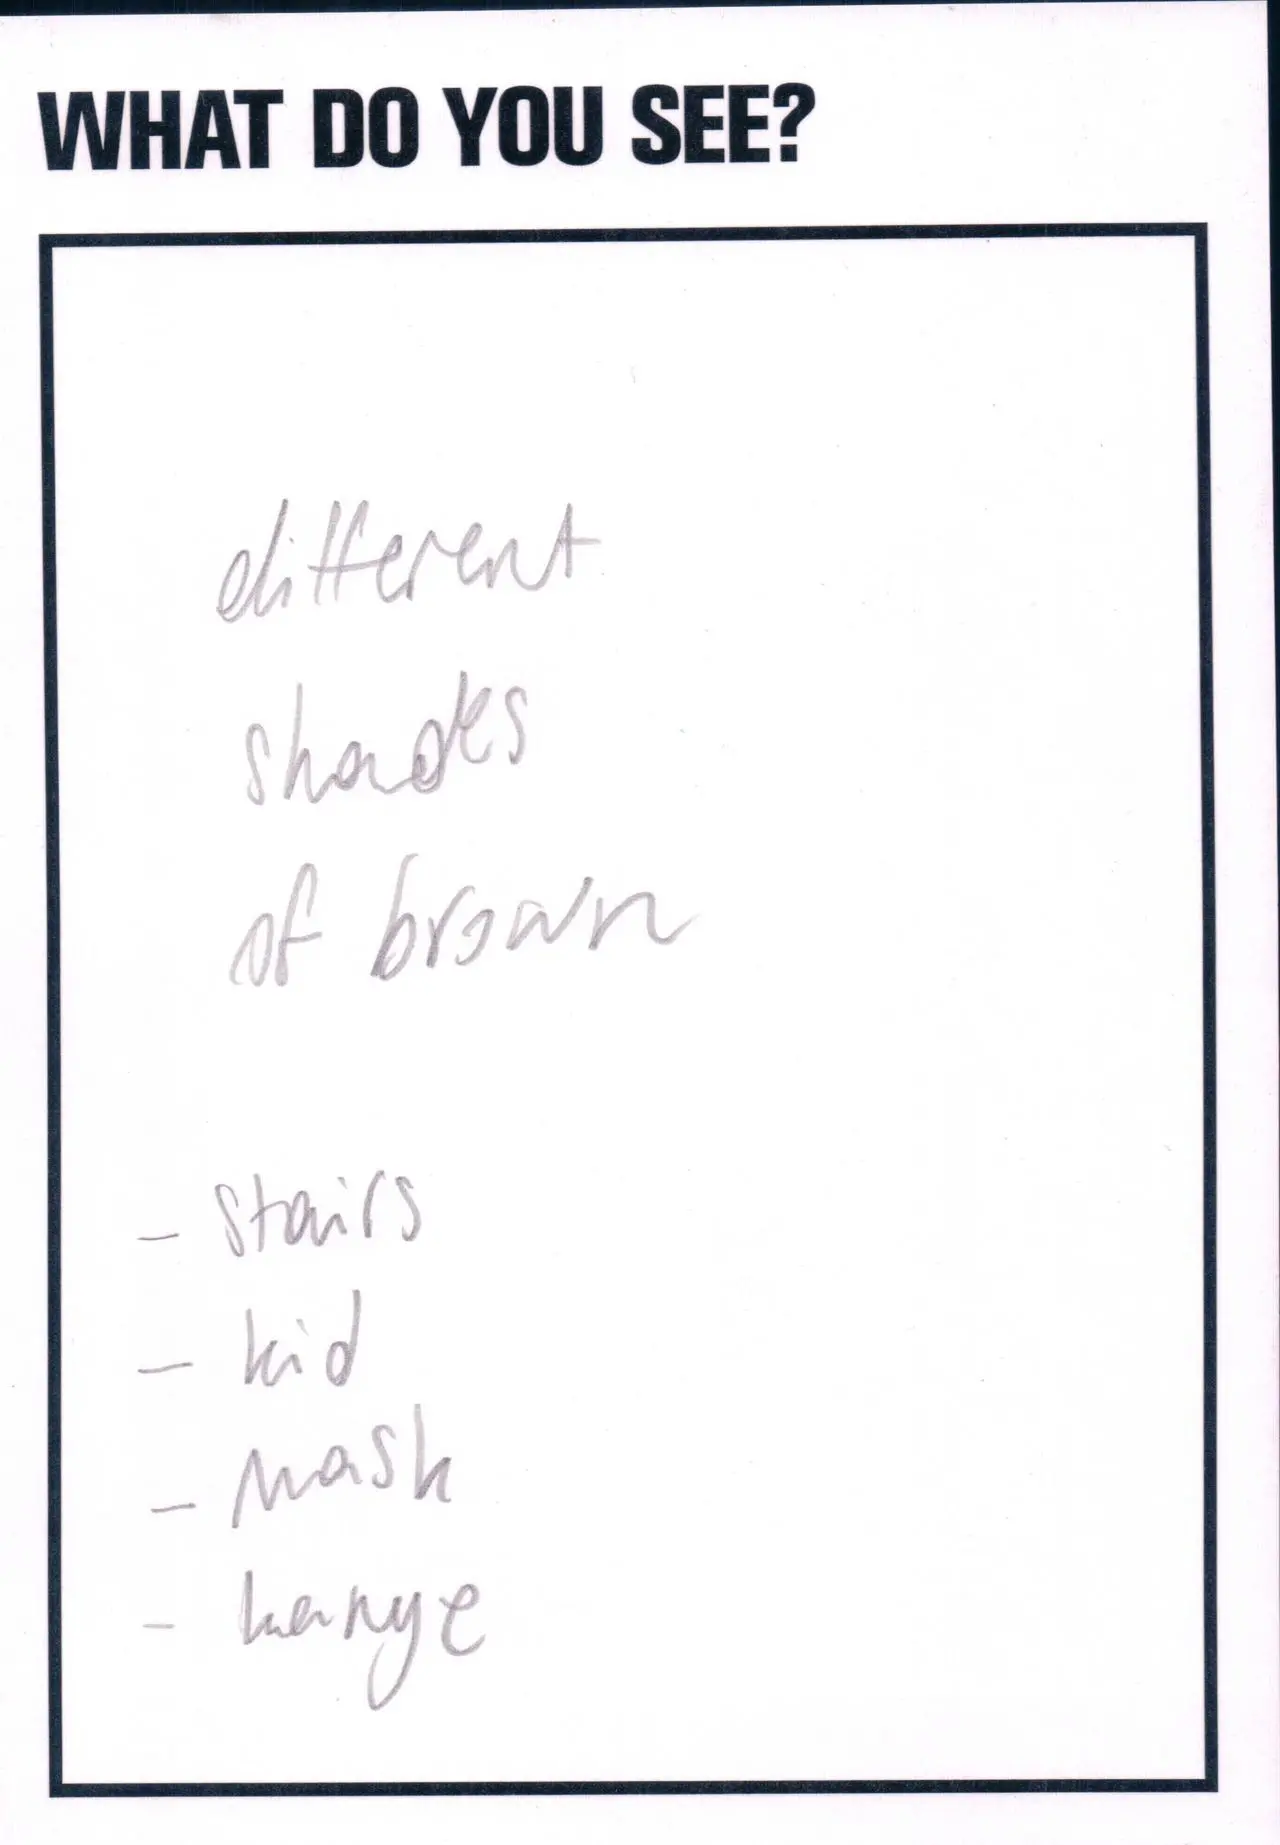 WHAT DO YOU SEE?
different
shades
of brown
- stairs
- kid
- mask
- kanye